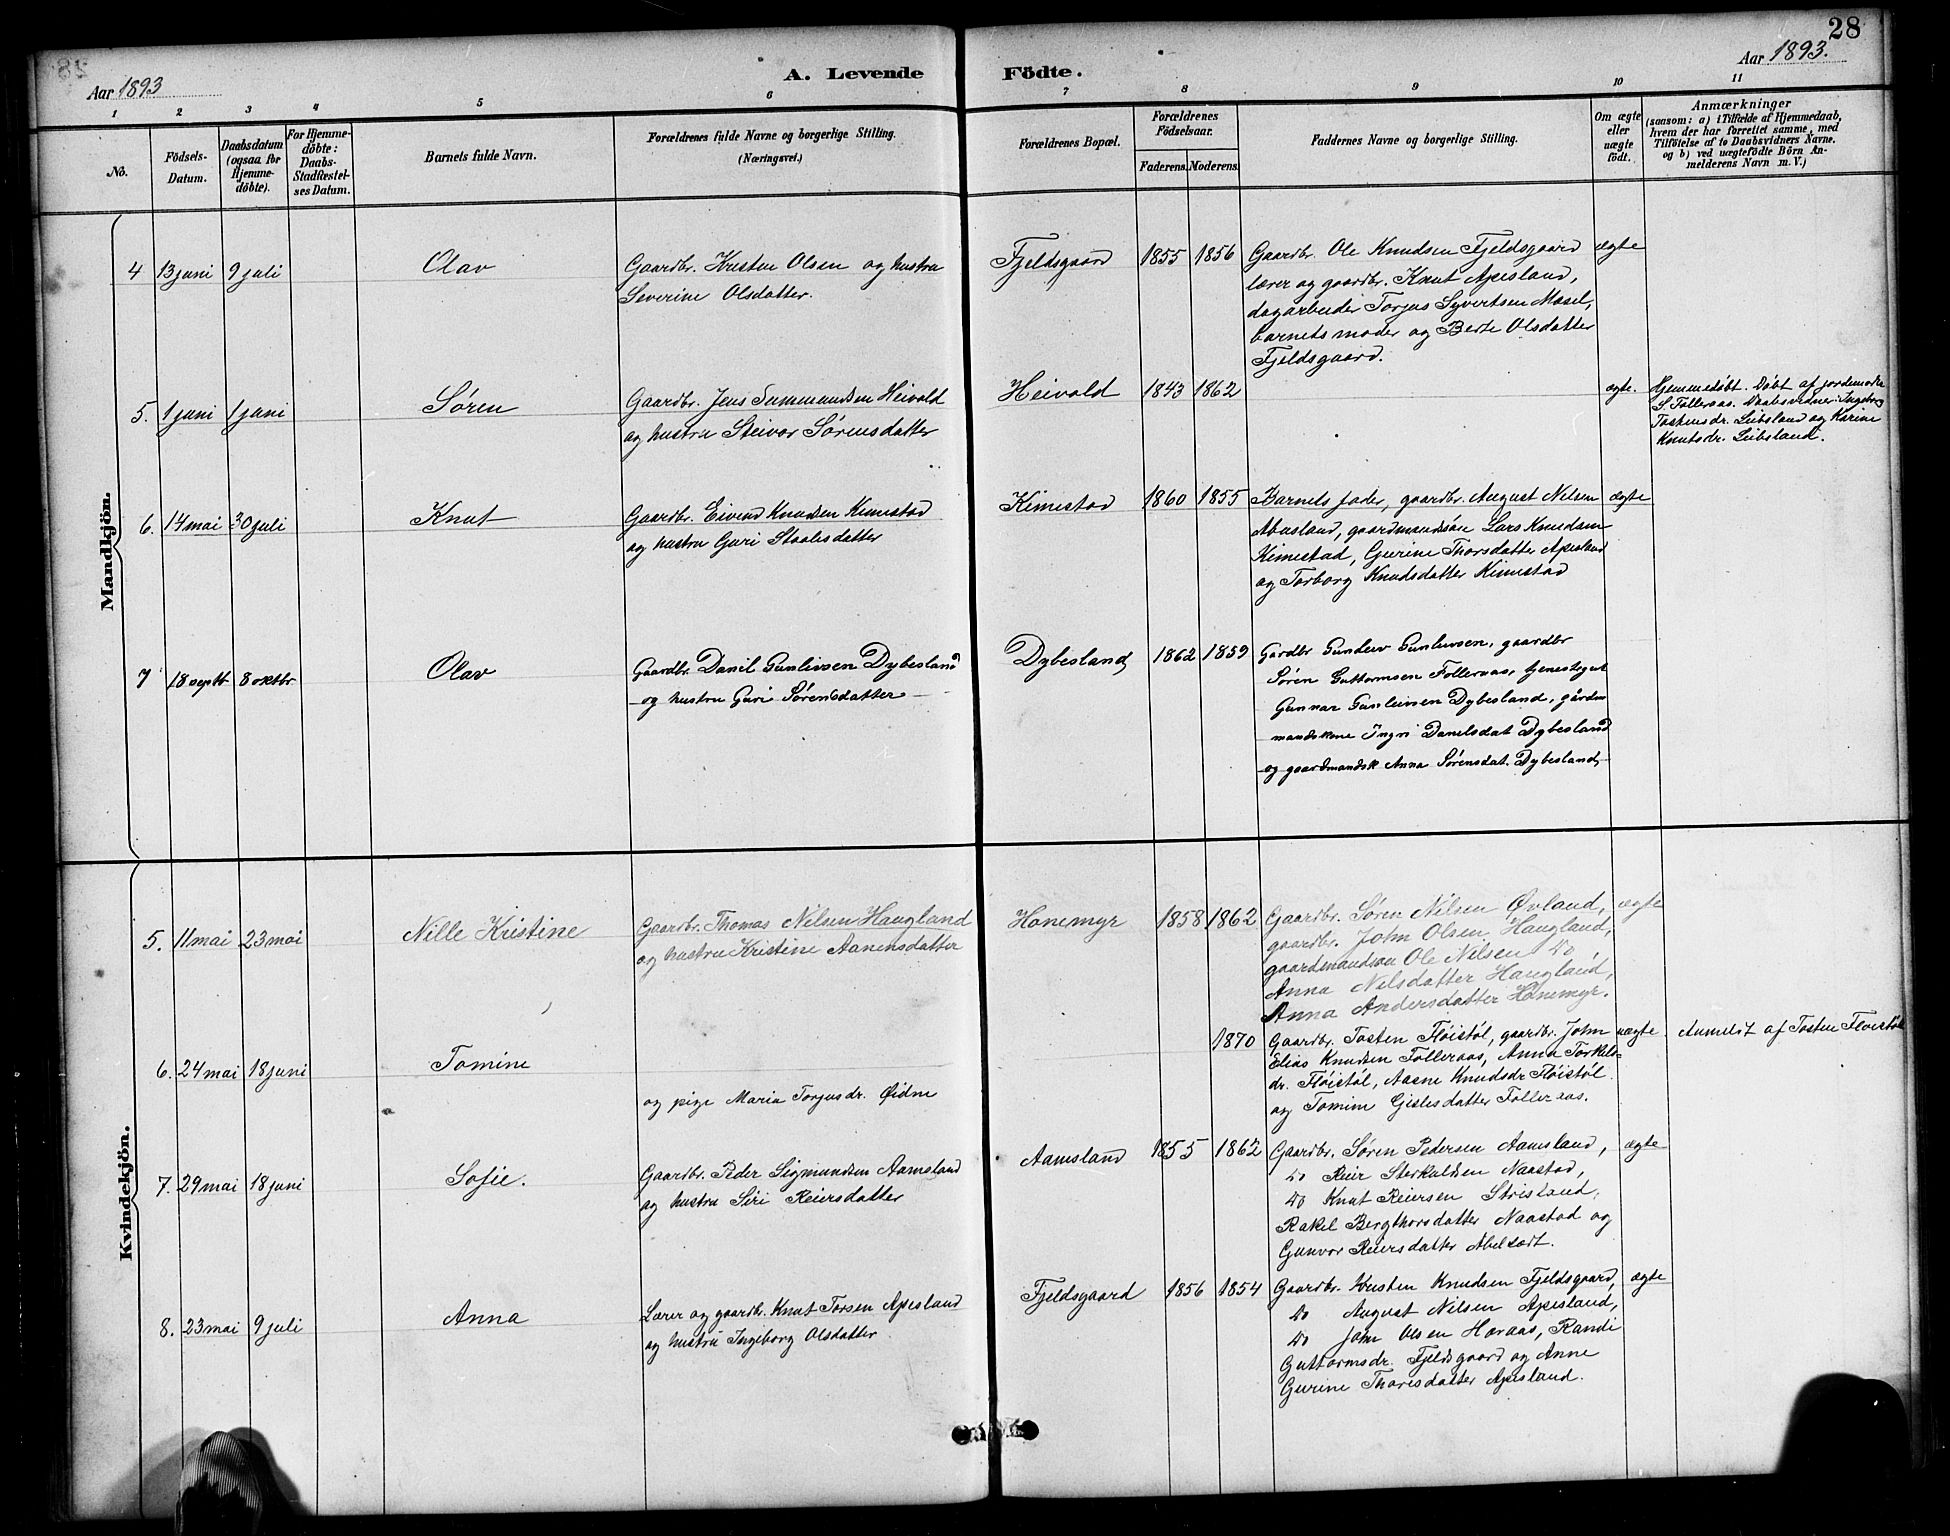 28
Aar 1893
A. Levende Födte.
Aar 1893.
1 2 3 4 5 6 7 8 9 10 11
No.
Födsels-
Datum.
Daabsdatum
(ogsaa for
Hjemme-
döbte).
For Hjemme-
döbte:
Daabs-
Stadfæstel-
ses Datum.
Barnets fulde Navn.
Forældrenes fulde Navne og borgerlige Stilling.
(Næringsvei.)
Forældrenes Bopæl.
Forældrenes
Födselsaar.
Faderens. Moderens.
Faddernes Navne og borgerlige Stilling.
Om ægte
eller
uægte
født.
Anmærkninger
(saasom: a) i Tilfælde af Hjemmedaab,
hvem der har forrettet samme, med
Tilföielse af to Daabsvidners Navne.
og b) ved uægtefödte Börn An-
melderens Navn m. V.)
Mandkjön.
4 13 juni 9 juli
Olav
Gaardbr. Kristen Olsen og hustru
Severine Olsdatter.
Fjeldsgaard 1855 1856
Gaardbr. Ole Knudsen Fjeldsgaard
lærer og gaardbr. Knut Apesland,
dagarbeider Torjus Syvertsen Mosel,
barnets moder og Berte Olsdatter
Fjeldsgaard.
ægte
5. 1 juni 1 juni
Søren
Gaardbr. Jens Summundsen Heivold
og hustru Steivor Sørensdatter
Heivold 1843 1862
ægte.
Hjemmedøbt. Døbt af jordemoder
S. Folleraas. Daabsvidner: Ingeborg
Tostensdr. Leibsland og Karine
Knutsdr. Leibsland.
6. 14 mai 30 juli
Knut
Gaardbr. Eivend Knudsen Kimestad
og hustru Guri Staalesdatter
Kimestad 1860 1855
Barnets fader, gaardbr. August Nilsen
Abusland, gaardmandsøn Lars Knudsen
Kimestad, Gurine Thorsdatter Apesland
og Torborg Knudsdatter Kimestad
ægte
7 18 septb 8 oktbr
Olav
Gaardbr. Danil Gunleivsen Dybesland
og hustru Guri Sørensdatter
Dybesland 1862 1859
Gardbr Gunleiv Gunleivsen, gaardbr
Søren Guttormsen Folleraas, tjenestegut
Gunnar Gunleivsen Dybesland, gården
mandskone Ingri Danelsdat Dybesland
og gaardmandsk Anna Sørensdat. Dybesland,
Kvindekjön.
5. 11 mai 23 mai
Nille Kristine
Gaardbr. Thomas Nilsen Haugland
og hustru Kristine Aanensdatter
Hanemyr 1858 1862
Gaardbr. Søren Nilsen Øvland,
gaardbr. John Olsen Haugland,
gaardmandsøn Ole Nilsen do
Anna Nilsdatter Haugland,
Anna Andersdatter Hanemyr.
ægte
6. 24 mai 18 juni
Tomine
og pige Maria Torjusdr. Øidne
1870
Gaardbr. Tosten Fløistøl, gaardbr. John
Elias Knudsen Folleraas, Anna Torkels-
dr. Fløistøl, Aasne Knudsdr Fløistøl
og Tomine Gislesdatter Folleraas.
uægte
Anmeldt af Tosten Fløistøl
7. 29 mai 18 juni
Sofie.
Gaardbr. Peder Sigmundsen Aamsland
og hustru Siri Reiersdatter
Aamsland 1855 1862
Gaardbr. Søren Pedersen Aamsland,
do Reier Sterkulsen Naastad,
do Knut Reiersen Strisland,
Rakel Bergthorsdatter Naastad og
Gunvor Reiersdatter Abelsædt.
ægte
8. 23 mai 9 juli
Anna
Lærer og gaardbr. Knut Torsen Apesland
og hustru Ingeborg Olsdatter
Fjeldsgaard 1856 1854
Gaardbr. Kristen Knudsen Fjeldsgaard,
do August Nilsen Apesland,
do John Olsen Høraas, Randi
Guttormsdr. Fjeldsgaard og Anne
Gurine Thorisdatter Apesland.
ægte